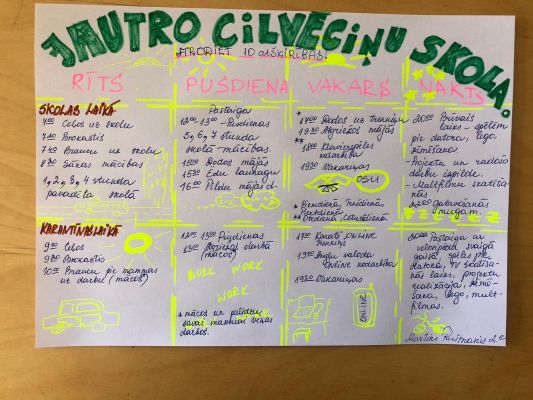 JAUTRO CILVĒCIŅU SKOLA.
ATRODIET 10 atšķirības!
RĪTS
PUSDIENA
VAKARS
NAKTS
SKOLAS LAIKĀ
7:00 Celos uz skolu
7:20 Brokastis
7:40 Braucu uz skolu
8:30 Sākas mācības
1, 2, 3, 4 stunda
pavadīta skolā
Pastaiga
13:00 – Pusdienas
5, 6, 7 stunda
skolā – mācības.
15:00 Dodos mājās
15:30 Ēdu launagu
16:00 Pildu mājas d.
* 17:00 Dodos uz treniņu
19:30 Atgriežos mājās
** 18:00 Klavierspēles
nodarbība
19:30 Vakariņas
OSU
* Pirmdiena, Trešdiena,
Piektdiena
** Otrdiena, Ceturtdiena
20:00 Brīvais
laiks – spēlēm
pie datora, lego,
zīmēšana.
- Projektu un radošo
darbu izpilde.
- Multfilmu skatīšanās
22:00 Gatavošanās
miegam.
ZZZZZZ
KARANTĪNAS LAIKĀ
9:00 Celos
9:30 Brokastis
10:00 Braucu pie mammas
uz darbu (mācos)
13:00 Pusdienas
15:00 Atpakaļ darbā
(mācos)
WORK WORK
WORK
* mācos un palīdzu
savai mammai viņas
darbos.
17:00 Karatē ONLINE
treniņš
18:00 Angļu valoda
ONLINE nodarbība
19:30 Vakariņas
ONLINE
20:00 Pastaiga ar
velosipēdu svaigā
gaisā, spēles pie
datora, TV skatīšanās
laiks, projektu
realizācija, zīmēšana,
lego, multfilmas.
Martins 2.c